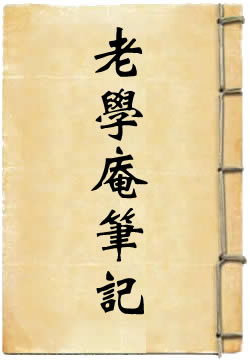 老學庵筆記